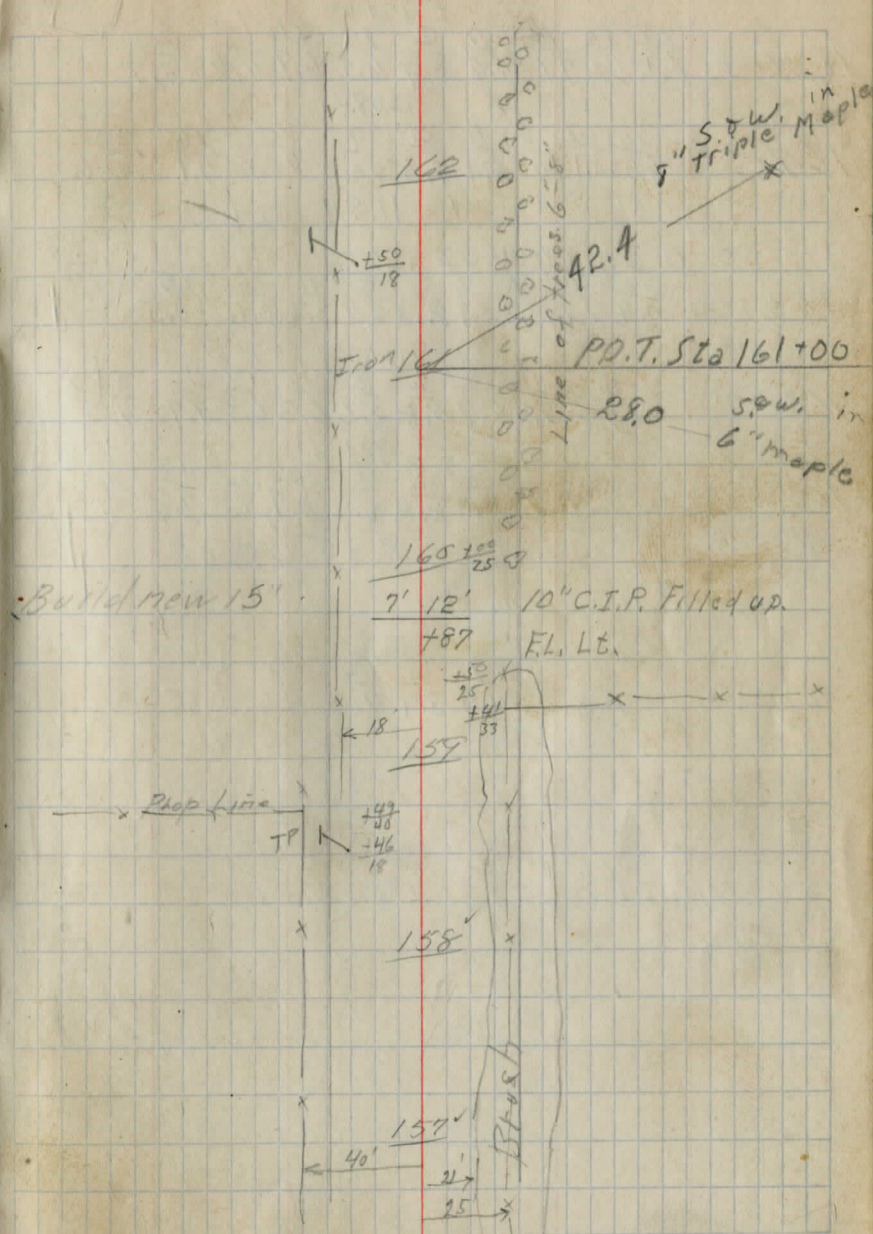 S. & W. in
8" Triple Maple
162
42.4
+50
18
Line of trees 6-8"
Iron 161
P.O.T. Sta 161+00
28.0
S. & W. in
6" maple
160
+00
25
Build new 15"
7' 12'
+87
10" C.I.P. Filled up.
F.L. Lt.
+50
25
+41
33
18'
159
Prop Line
TP
+49
40
+46
18
158
Brush
157
40'
21'
25